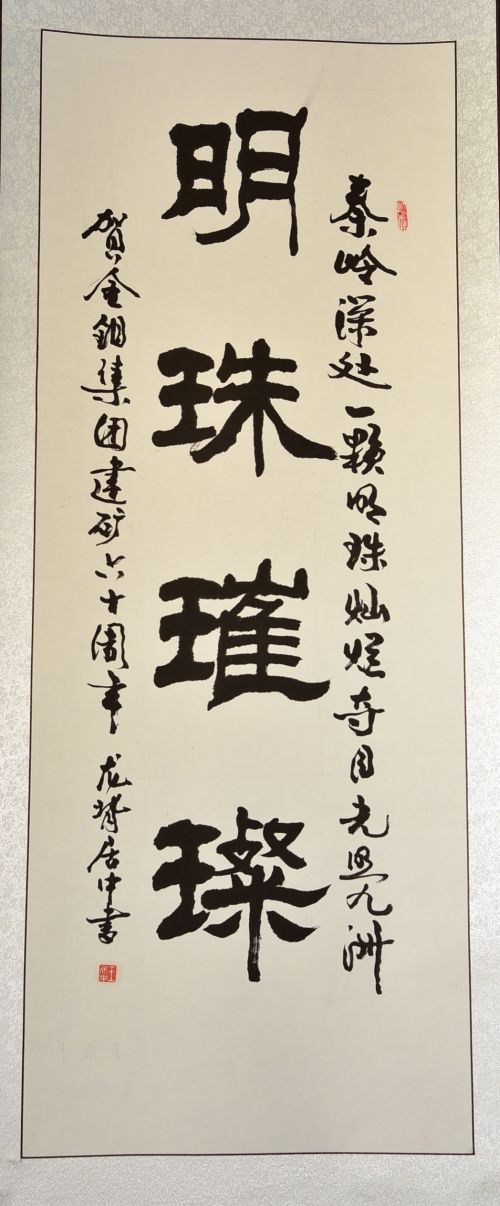 秦岭深处一颗明珠灿烂夺目光照九洲
明珠璀璨
贺金钼集团建矿六十周年 龙 居中书